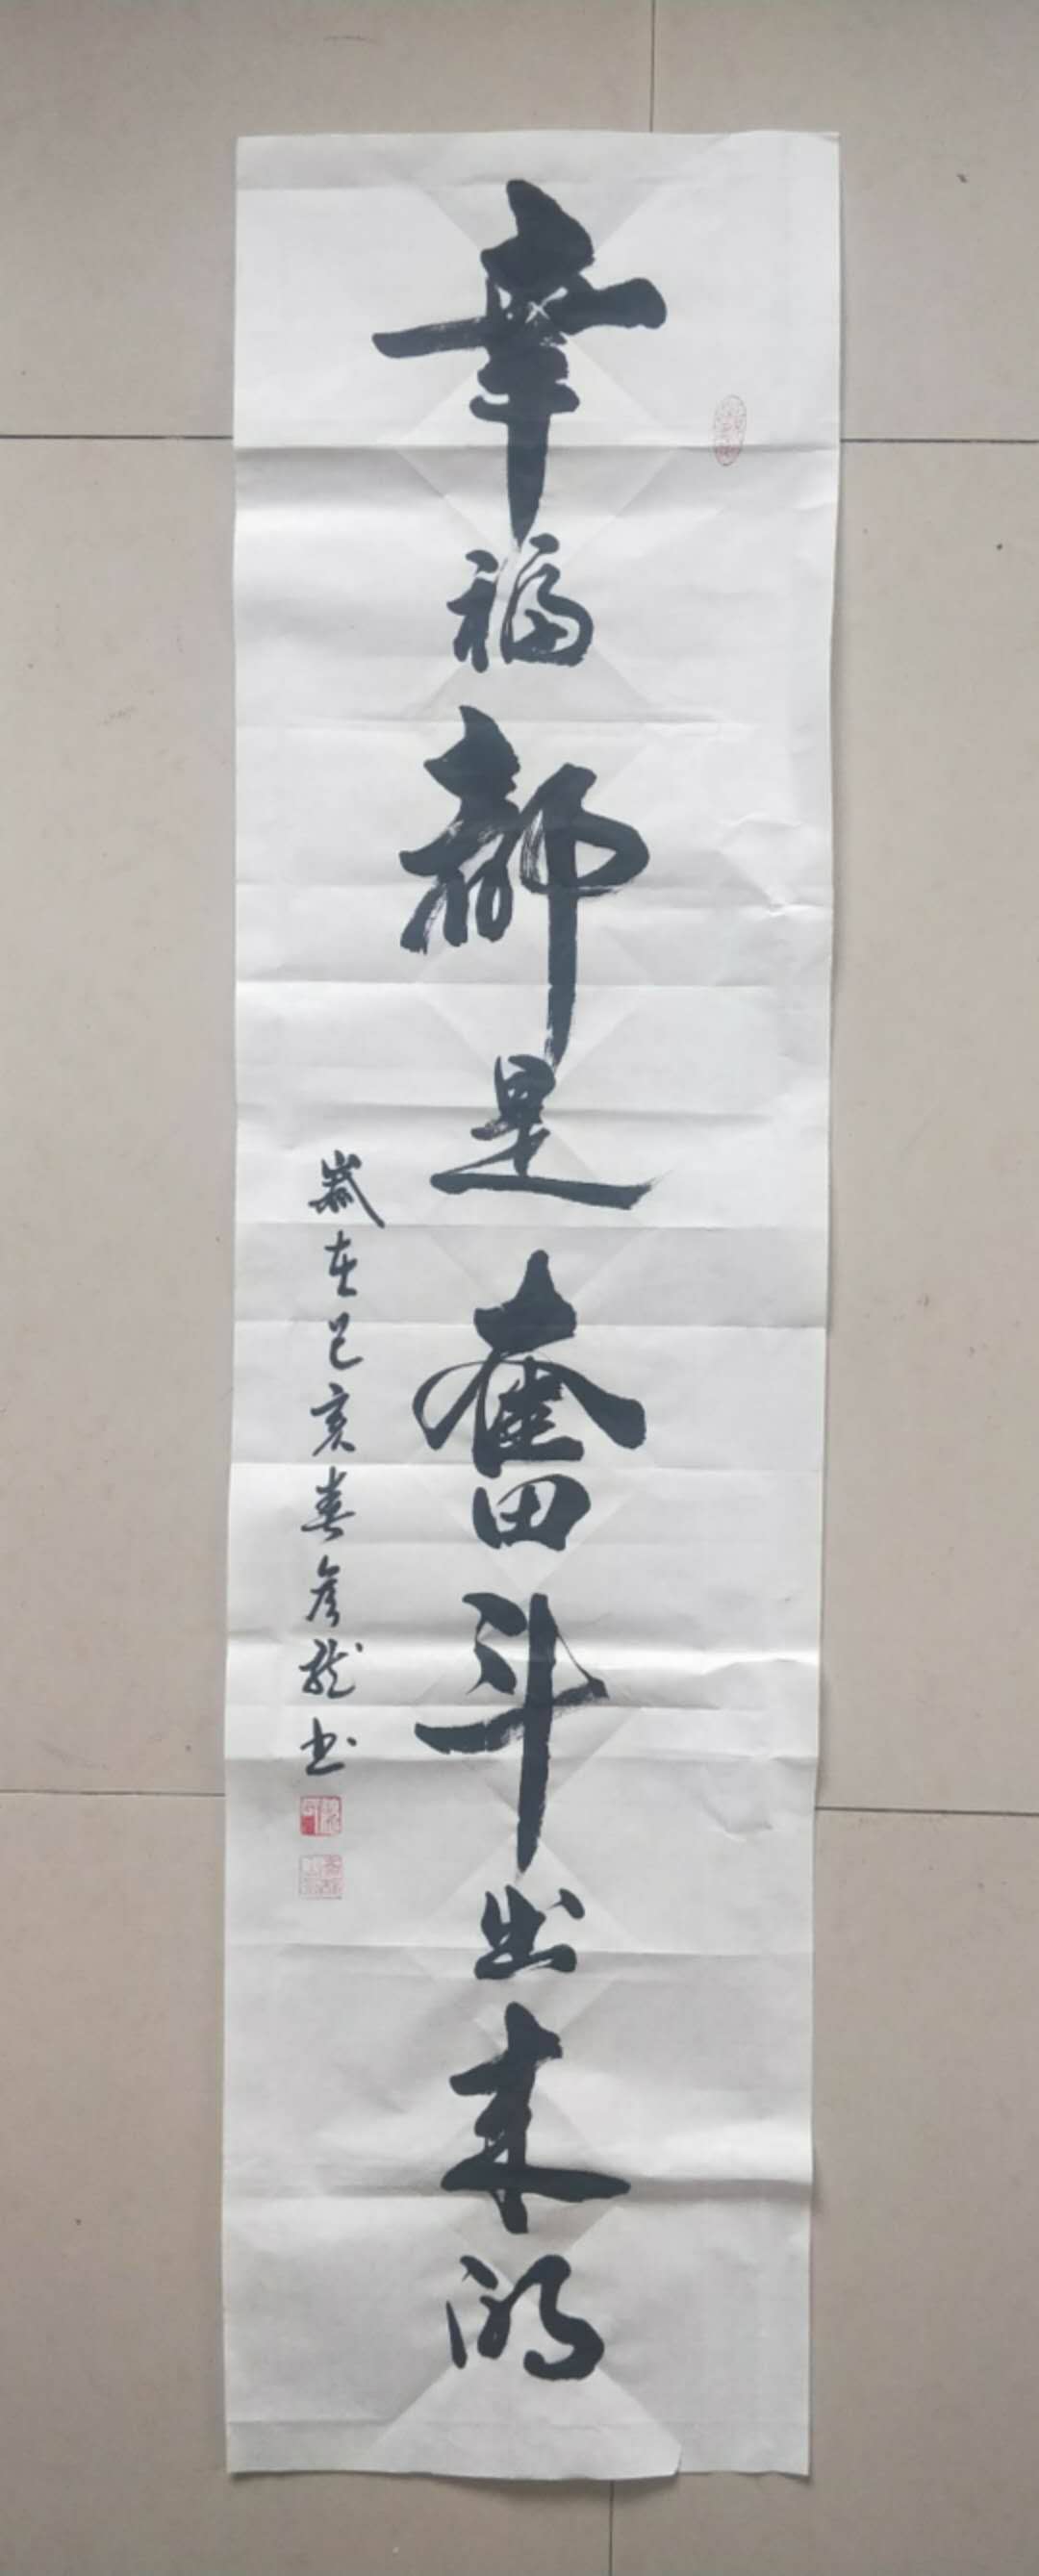 幸福都是奮斗出来的
歲在己亥春彦龍书